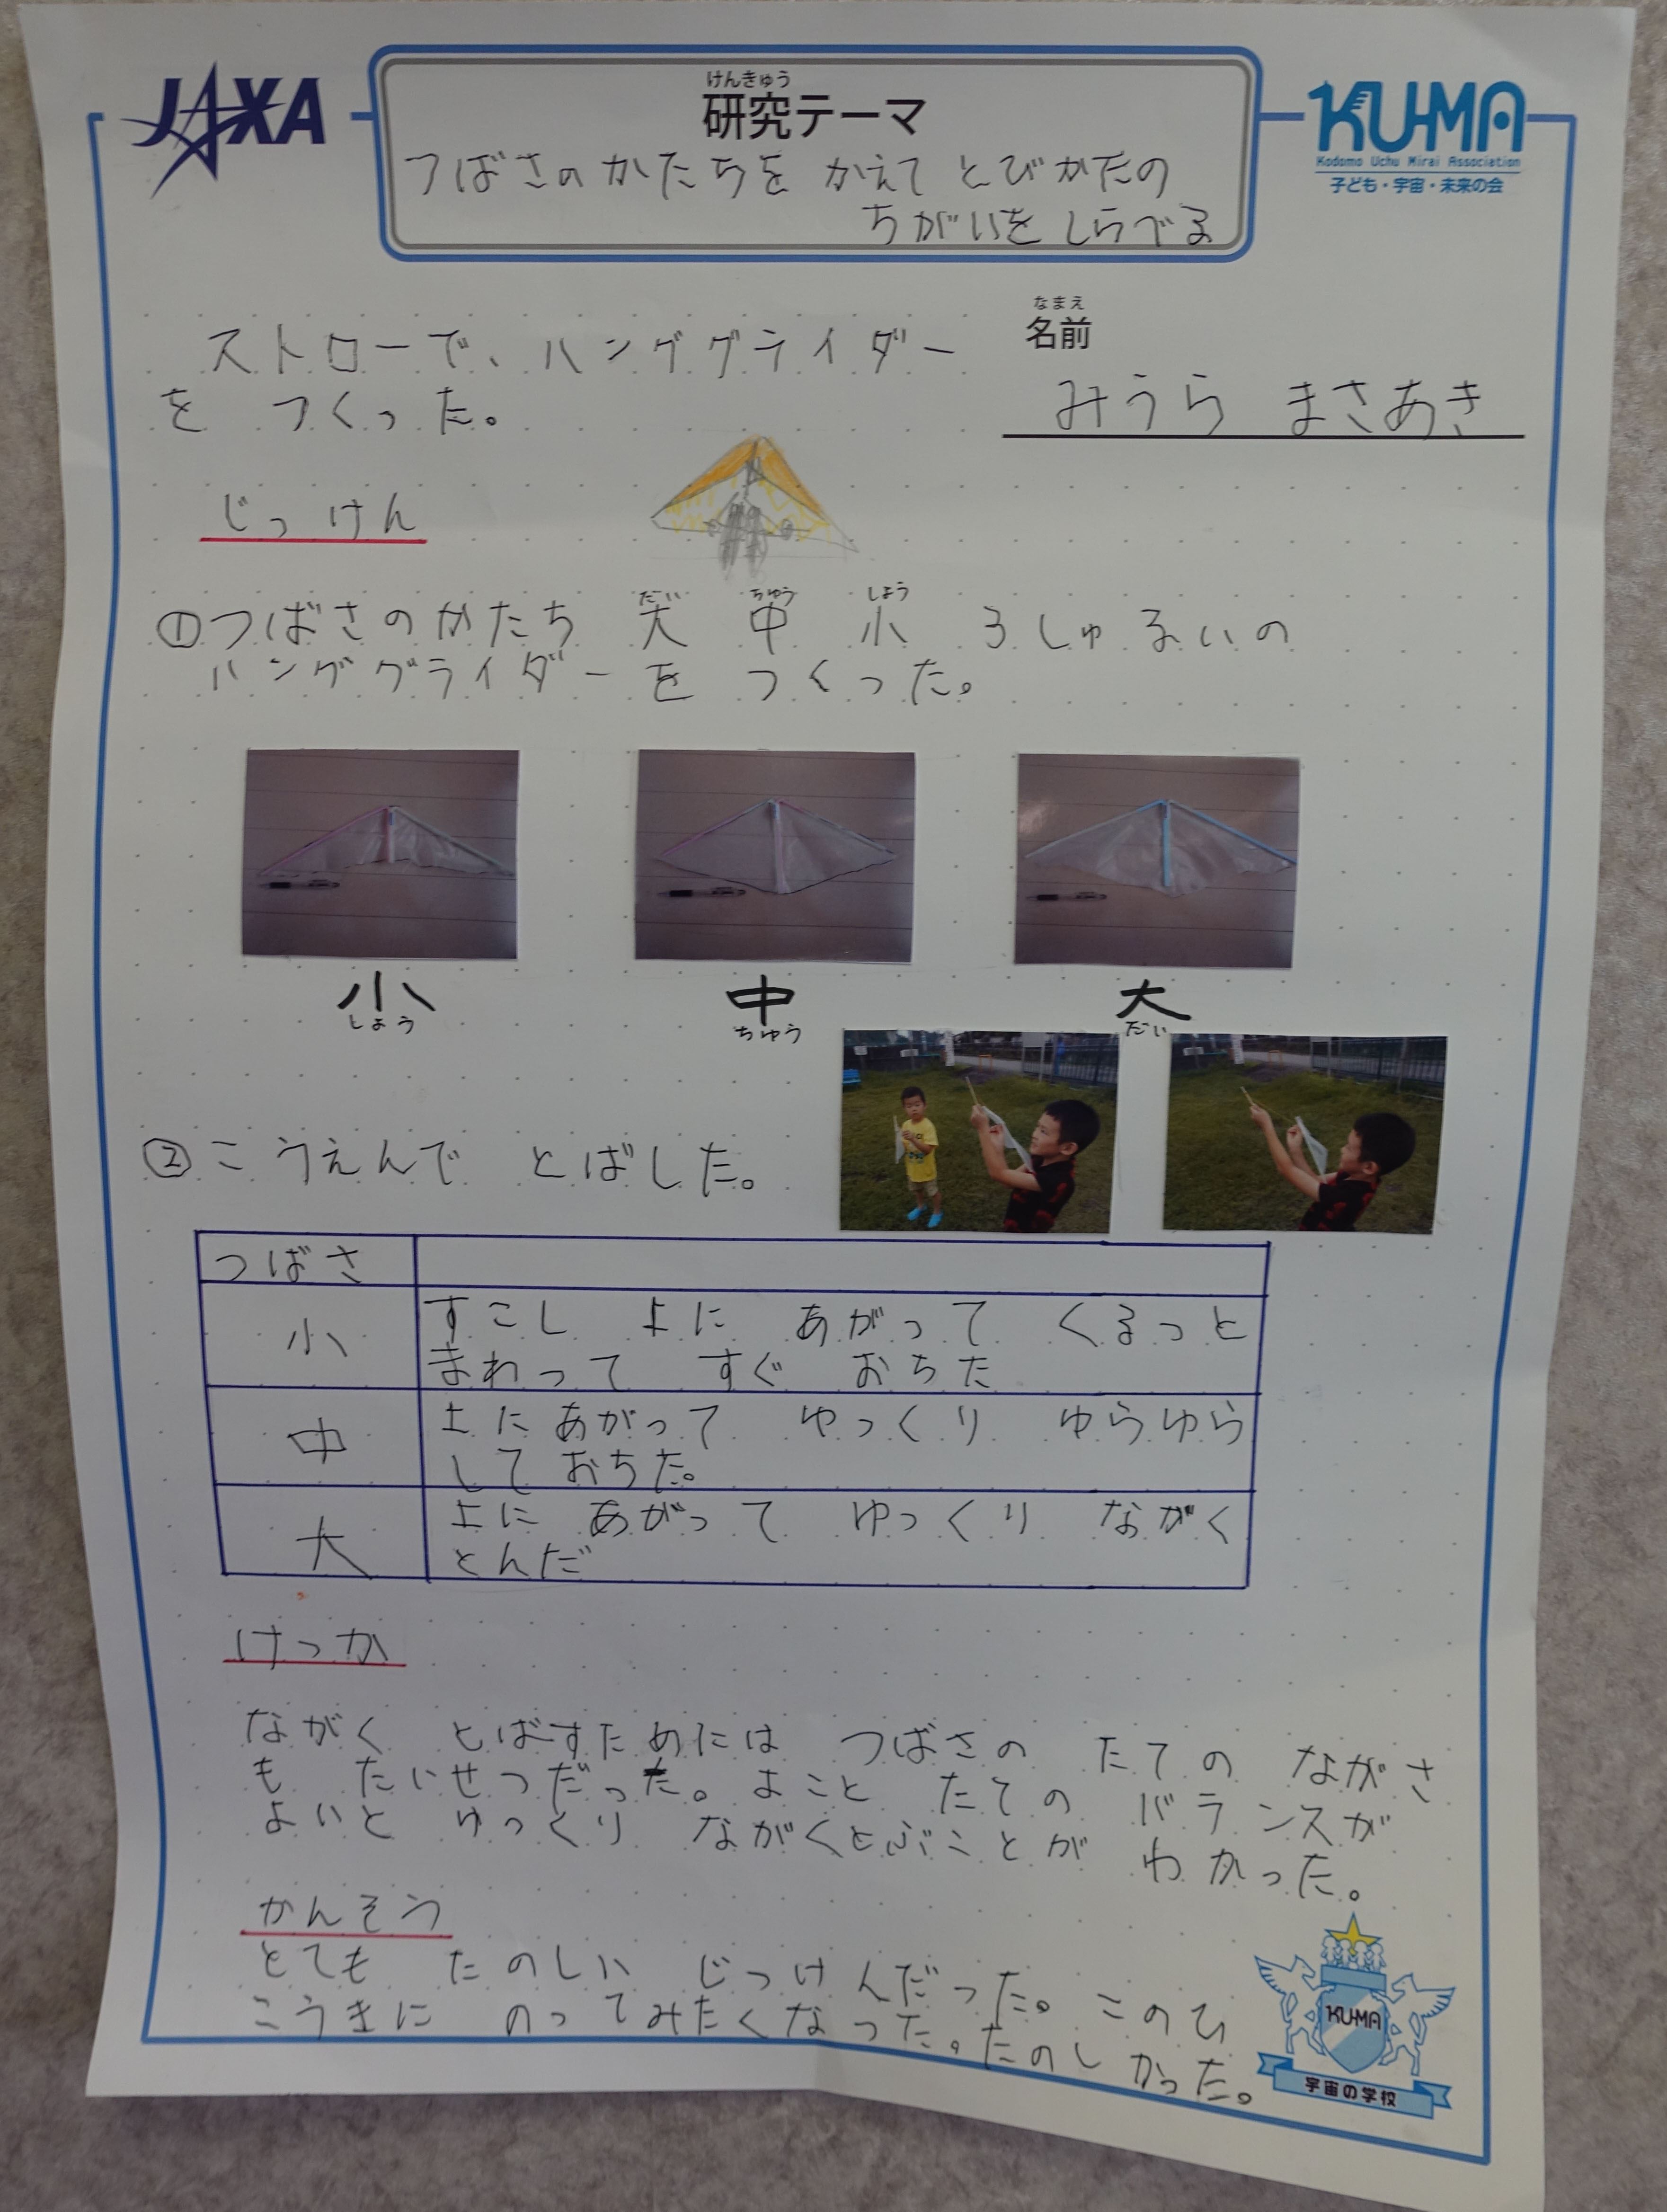 JAXA
けんきゅう
研究テーマ
KUMA
Kodomo Uchu Mirai Association
子ども・宇宙・未来の会
つばさのかたちを かえて とびかたの
ちがいを しらべる
なまえ
名前
みうら まさあき
ストローで、ハンググライダー
を つくった。
じっけん
だい ちゅう しょう
①つばさのかたち 大 中 小 3しゅるいの
ハンググライダーを つくった。
小 中 大
しょう ちゅう だい
②こうえんで とばした。
つばさ
小
すこし 上に あがって くるっと
まわって すぐ おちた
中
上にあがって ゆっくり ゆらゆら
して おちた。
大
上に あがって ゆっくり ながく
とんだ
けっか
ながく とばすためには つばさの たての ながさ
も たいせつだった。よこと たての バランスが
よいと ゆっくり ながくとぶことが わかった。
かんそう
とても たのしい じっけんだった。このひ
こうきに のってみたくなった。たのしかった。
KUMA
宇宙の学校